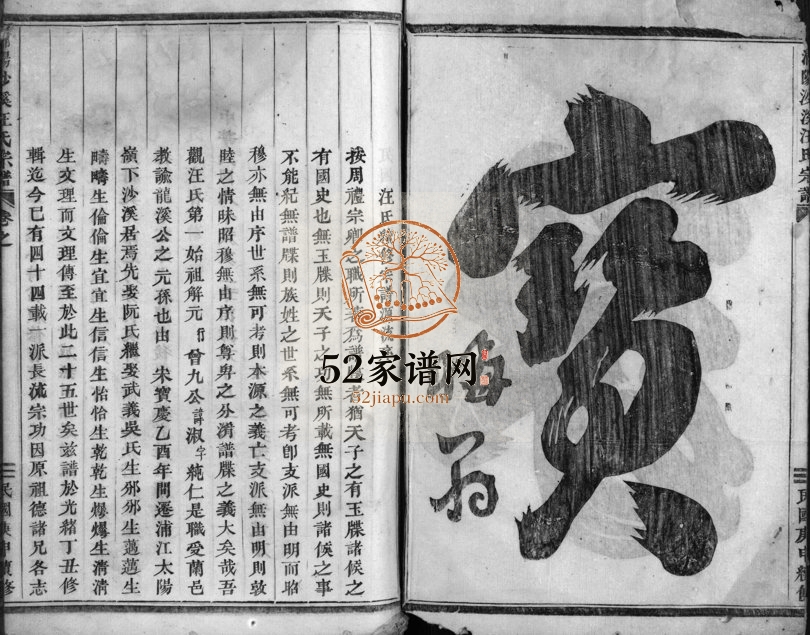 沙溪汪氏宗譜
寶
晦翁
民國庚申續修
汪氏
按周禮宗卿之職所為譜者猶天子之有玉牒諸侯之
有國史也無玉牒則天子之功無所載無國史則諸侯之事
不能紀無譜牒則族姓之世系無可考卽支派無由明而昭
穆亦無由序世系無可考則本源之義亡支派無由明則敦
睦之情昧昭穆無由序則尊卑之分淆譜牒之義大矣哉吾
觀汪氏第一始祖解元行曾九公諱淑字純仁是職愛蘭邑
教諭龍溪公之元孫也由 宋寶慶乙酉年間遷浦江太陽
嶺下沙溪居焉先娶阮氏繼娶武義吳氏生邠邠生薖薖生
疇疇生倫倫生宜宜生信信生怡怡生乾乾生爆爆生淸淸
生文理而文理傳至於此二十五世矣茲譜於光緒丁丑修
輯迄今已有四十四載一派長流宗功因原祖德諸兄各志
陽沙溪汪氏宗譜 卷之
民國庚申續修
52家谱网
52jiapu.com